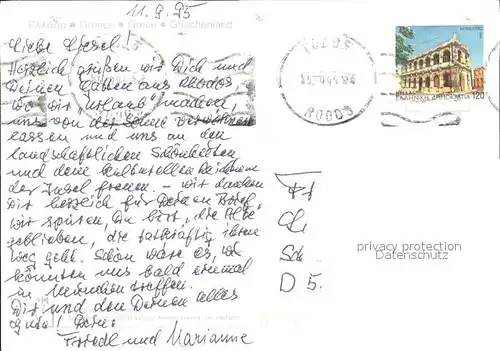 11.9.95
Ελλάδα ■ Greece ■ Grèce ■ Griechenland
Liebe Gisela!
Herzlich grüßen wir Dich und
Deinen Gatten aus Rhodos,
wo wir "Urlaub" machen,
uns von der Sonne verwöhnen
lassen und uns an den
landschaftlichen Schönheiten
und dem kulturellen Reichtum
der Insel freuen. – Wir danken
Dir herzlich für Deinen Brief,
wir spüren, Du bist "die Alte"
geblieben, die tatkräftig ihren
Weg geht. Schön wäre es, wir
könnten uns bald einmal
in München treffen.
Dir und den Deinen alles
Gute!
Friedl und Marianne
ΡΟΔΟΣ
RODOS
ΕΛΛΗΝΙΚΗ ΔΗΜΟΚΡΑΤΙΑ 120
privacy protection
Datenschutz
D 5.